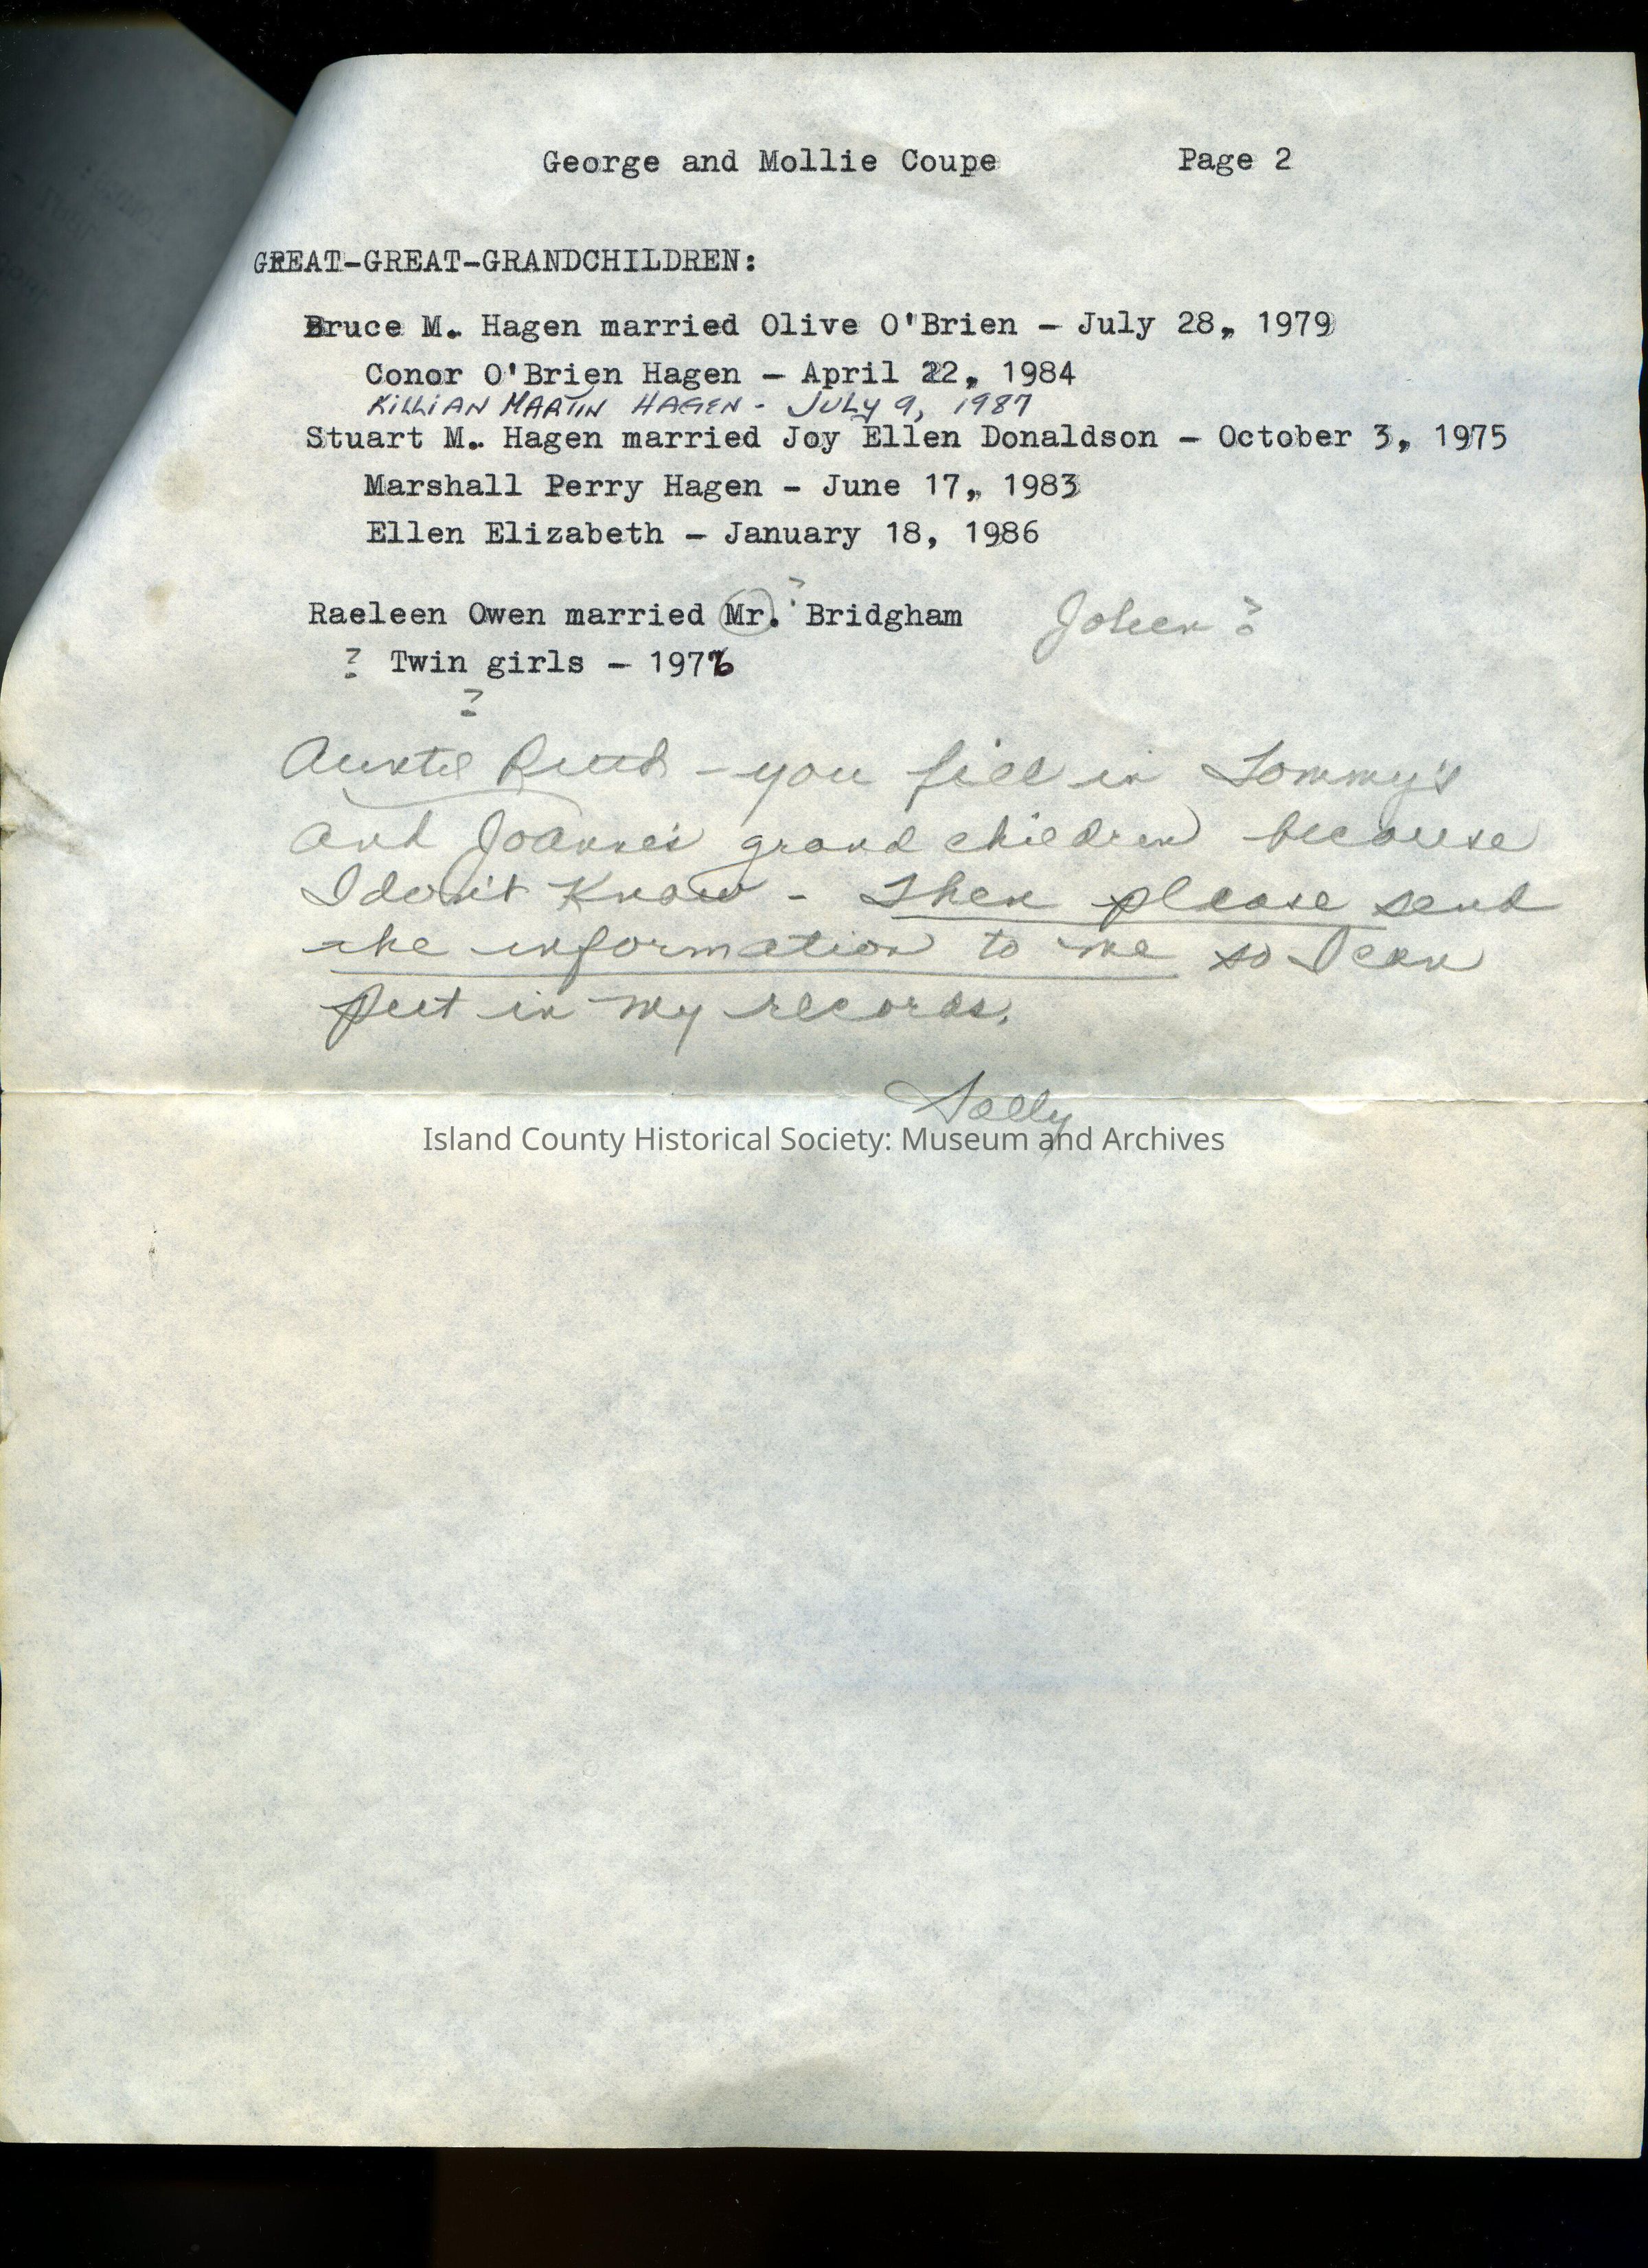 George and Mollie Coupe Page 2
GREAT-GREAT-GRANDCHILDREN:
Bruce M. Hagen married Olive O'Brien - July 28, 1979
Conor O'Brien Hagen - April 22, 1984
KILLIAN MARTIN HAGEN - JULY 9, 1987
Stuart M. Hagen married Joy Ellen Donaldson - October 3, 1975
Marshall Perry Hagen - June 17, 1983
Ellen Elizabeth - January 18, 1986
?
Raeleen Owen married Mr. Bridgham ?
? Twin girls - 1976
?
Auntie Ruth - you fill in Tommy's
and Joanne's grand children because
I don't know - Then please send
the information to me so I can
put in my records.
Sally
Island County Historical Society: Museum and Archives